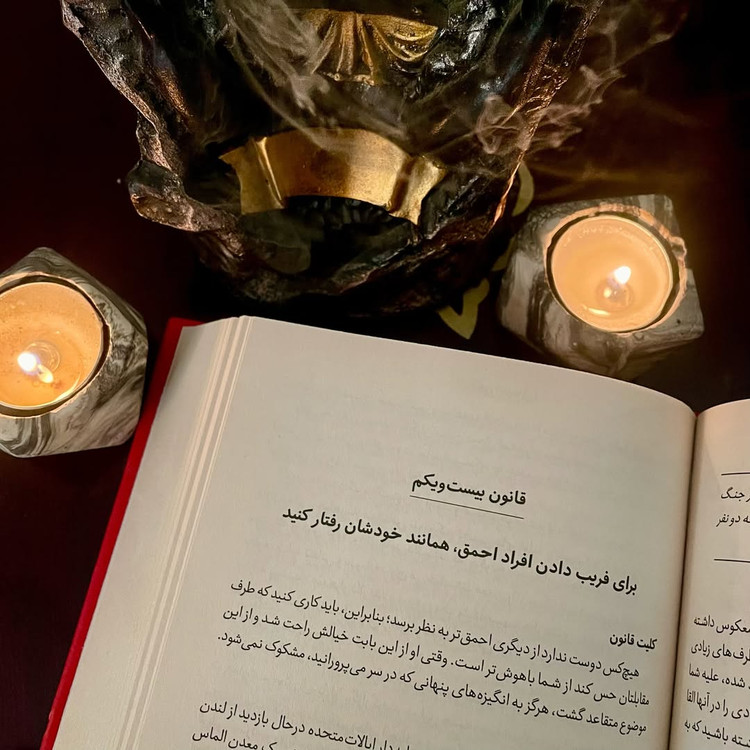 قانون بیست‌ویکم
برای فریب دادن افراد احمق، همانند خودشان رفتار کنید
کلیت قانون
هیچ‌کس دوست ندارد از دیگری احمق‌تر به نظر برسد؛ بنابراین، باید کاری کنید که طرف
مقابلتان حس کند از شما باهوش‌تر است. وقتی او از این بابت خیالش راحت شد و از این
موضوع متقاعد گشت، هرگز به انگیزه‌های پنهانی که در سر می‌پرورانید، مشکوک نمی‌شود.
ایالات متحده درحال بازدید از لندن
معدن الماس
جنگ
دو نفر
معکوس داشته
طرف‌های زیادی
شده، علیه شما
دی را در آنها القا
شته باشید که به